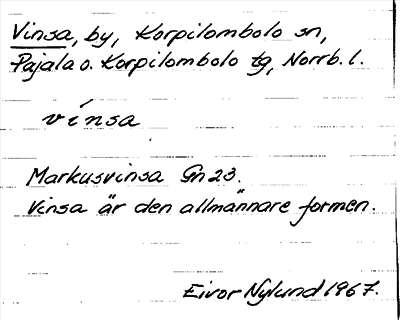 Vinsa, by, Korpilombolo sn,
Pajala o. Korpilombolo tg, Norrb. l.
vínsa
Markusvinsa Gn 23.
Vinsa är den allmännare formen.
Eivor Nylund 1967.